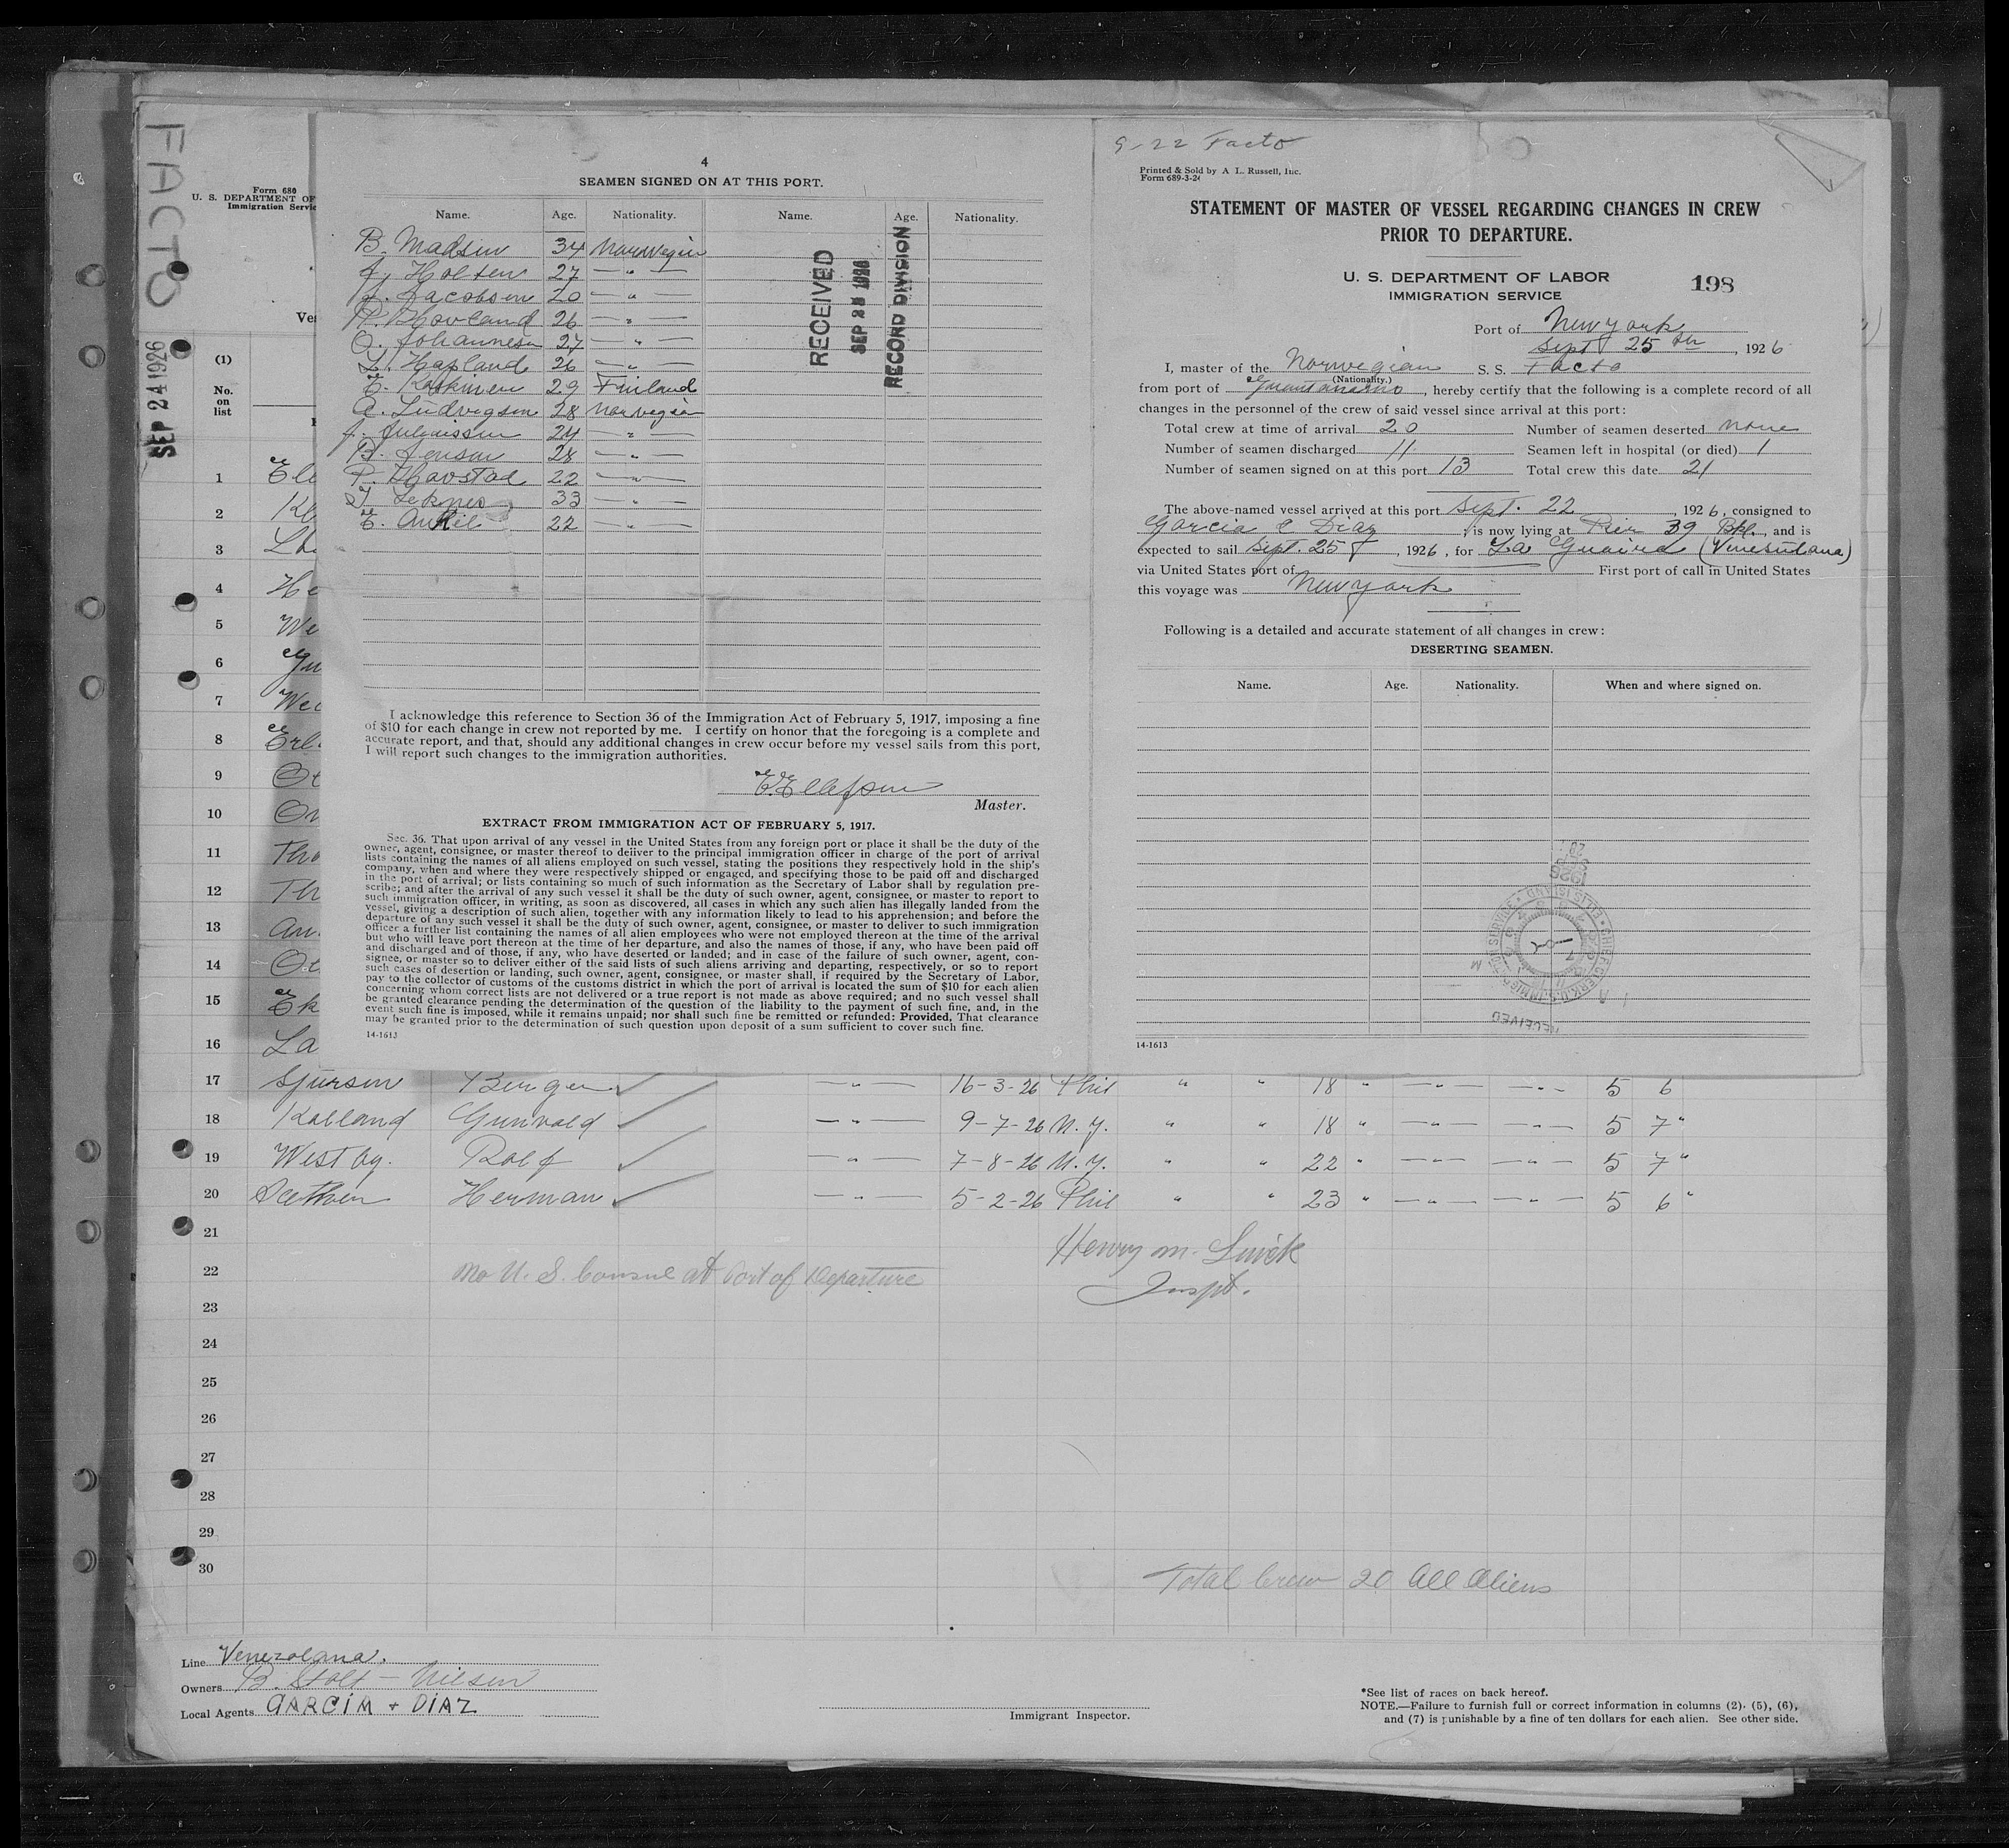 FACTO
SEP 24 1926
Form 680
U. S. DEPARTMENT OF
Immigration Servic
Ves
(1)
No.
on
list
1 Ele
2 Kl
3
4 He
5 We
6 Gu
7 Wei
8 Erl
9 Ot
10
11 Tho
12 Th
13
14 Ot
15 Ek
16 La
4
SEAMEN SIGNED ON AT THIS PORT.
Name. Age. Nationality. Name. Age. Nationality.
B. Madsen 34 Norwegian
J. Holsen 27 — " —
J. Jacobsen 20 — " —
R. Hovland 26 — " —
O. Johannesen 27 — " —
L. Hapland 26 — " —
E. Koskinen 29 Finland
A. Ludvigsen 28 Norwegian
J. 24 — " —
B. Jenson 28 — " —
P. Havstad 22 — " —
T. Leknes 33 — " —
E. 22 — " —
RECEIVED
SEP 25 1926
RECORD DIVISION
I acknowledge this reference to Section 36 of the Immigration Act of February 5, 1917, imposing a fine
of $10 for each change in crew not reported by me. I certify on honor that the foregoing is a complete and
accurate report, and that, should any additional changes in crew occur before my vessel sails from this port,
I will report such changes to the immigration authorities.
E. Ellefsen
Master.
EXTRACT FROM IMMIGRATION ACT OF FEBRUARY 5, 1917.
Sec. 36. That upon arrival of any vessel in the United States from any foreign port or place it shall be the duty of the
owner, agent, consignee, or master thereof to deliver to the principal immigration officer in charge of the port of arrival
lists containing the names of all aliens employed on such vessel, stating the positions they respectively hold in the ship's
company, when and where they were respectively shipped or engaged, and specifying those to be paid off and discharged
in the port of arrival; or lists containing so much of such information as the Secretary of Labor shall by regulation pre-
scribe; and after the arrival of any such vessel it shall be the duty of such owner, agent, consignee, or master to report to
such immigration officer, in writing, as soon as discovered, all cases in which any such alien has illegally landed from the
vessel, giving a description of such alien, together with any information likely to lead to his apprehension; and before the
departure of any such vessel it shall be the duty of such owner, agent, consignee, or master to deliver to such immigration
officer a further list containing the names of all alien employees who were not employed thereon at the time of the arrival
but who will leave port thereon at the time of her departure, and also the names of those, if any, who have been paid off
and discharged and of those, if any, who have deserted or landed; and in case of the failure of such owner, agent, con-
signee, or master so to deliver either of the said lists of such aliens arriving and departing, respectively, or so to report
such cases of desertion or landing, such owner, agent, consignee, or master shall, if required by the Secretary of Labor,
pay to the collector of customs of the customs district in which the port of arrival is located the sum of $10 for each alien
concerning whom correct lists are not delivered or a true report is not made as above required; and no such vessel shall
be granted clearance pending the determination of the question of the liability to the payment of such fine, and, in the
event such fine is imposed, while it remains unpaid; nor shall such fine be remitted or refunded: Provided, That clearance
may be granted prior to the determination of such question upon deposit of a sum sufficient to cover such fine.
14-1613
9-22 Facto
Printed & Sold by A. L. Russell, Inc.
Form 689-3-24
STATEMENT OF MASTER OF VESSEL REGARDING CHANGES IN CREW
PRIOR TO DEPARTURE.
U. S. DEPARTMENT OF LABOR
IMMIGRATION SERVICE
198
Port of New york
Sept 25 th, 1926
I, master of the Norwegian S. S. Facto
(Nationality.)
from port of Guantanamo, hereby certify that the following is a complete record of all
changes in the personnel of the crew of said vessel since arrival at this port:
Total crew at time of arrival 20 Number of seamen deserted none
Number of seamen discharged 11 Seamen left in hospital (or died) 1
Number of seamen signed on at this port 13 Total crew this date 21
The above-named vessel arrived at this port Sept. 22, 1926, consigned to
Garcia & Diaz, is now lying at Pier 39 Bkl., and is
expected to sail Sept. 25, 1926, for La Guaira (Venesulana)
via United States port of First port of call in United States
this voyage was New york
Following is a detailed and accurate statement of all changes in crew:
DESERTING SEAMEN.
Name. Age. Nationality. When and where signed on.
RECEIVED
CHIEF CLERK, U.S. IMMIGRATION SERVICE • ELLIS ISLAND
1926
14-1613
17 Sjursen Birger — " — 16-3-26 Phil " " 18 " — " — — " — 5 6
18 Kolland Gunvald — " — 9-7-26 N. Y. " " 18 " — " — — " — 5 7 "
19 Westby. Rolf — " — 7-8-26 N. Y. " " 22 " — " — — " — 5 7 "
20 Herman — " — 5-2-26 Phil " " 23 " — " — — " — 5 6 "
21
Henry M.
22 No U. S. Consul at Port of Departure
Inspt.
23
24
25
26
27
28
29
30
Total Crew 20 All Aliens
Line Venezolana.
Owners B. Stolt - Nilsen
Local Agents GARCIA + DIAZ
Immigrant Inspector.
*See list of races on back hereof.
NOTE.—Failure to furnish full or correct information in columns (2), (5), (6),
and (7) is punishable by a fine of ten dollars for each alien. See other side.